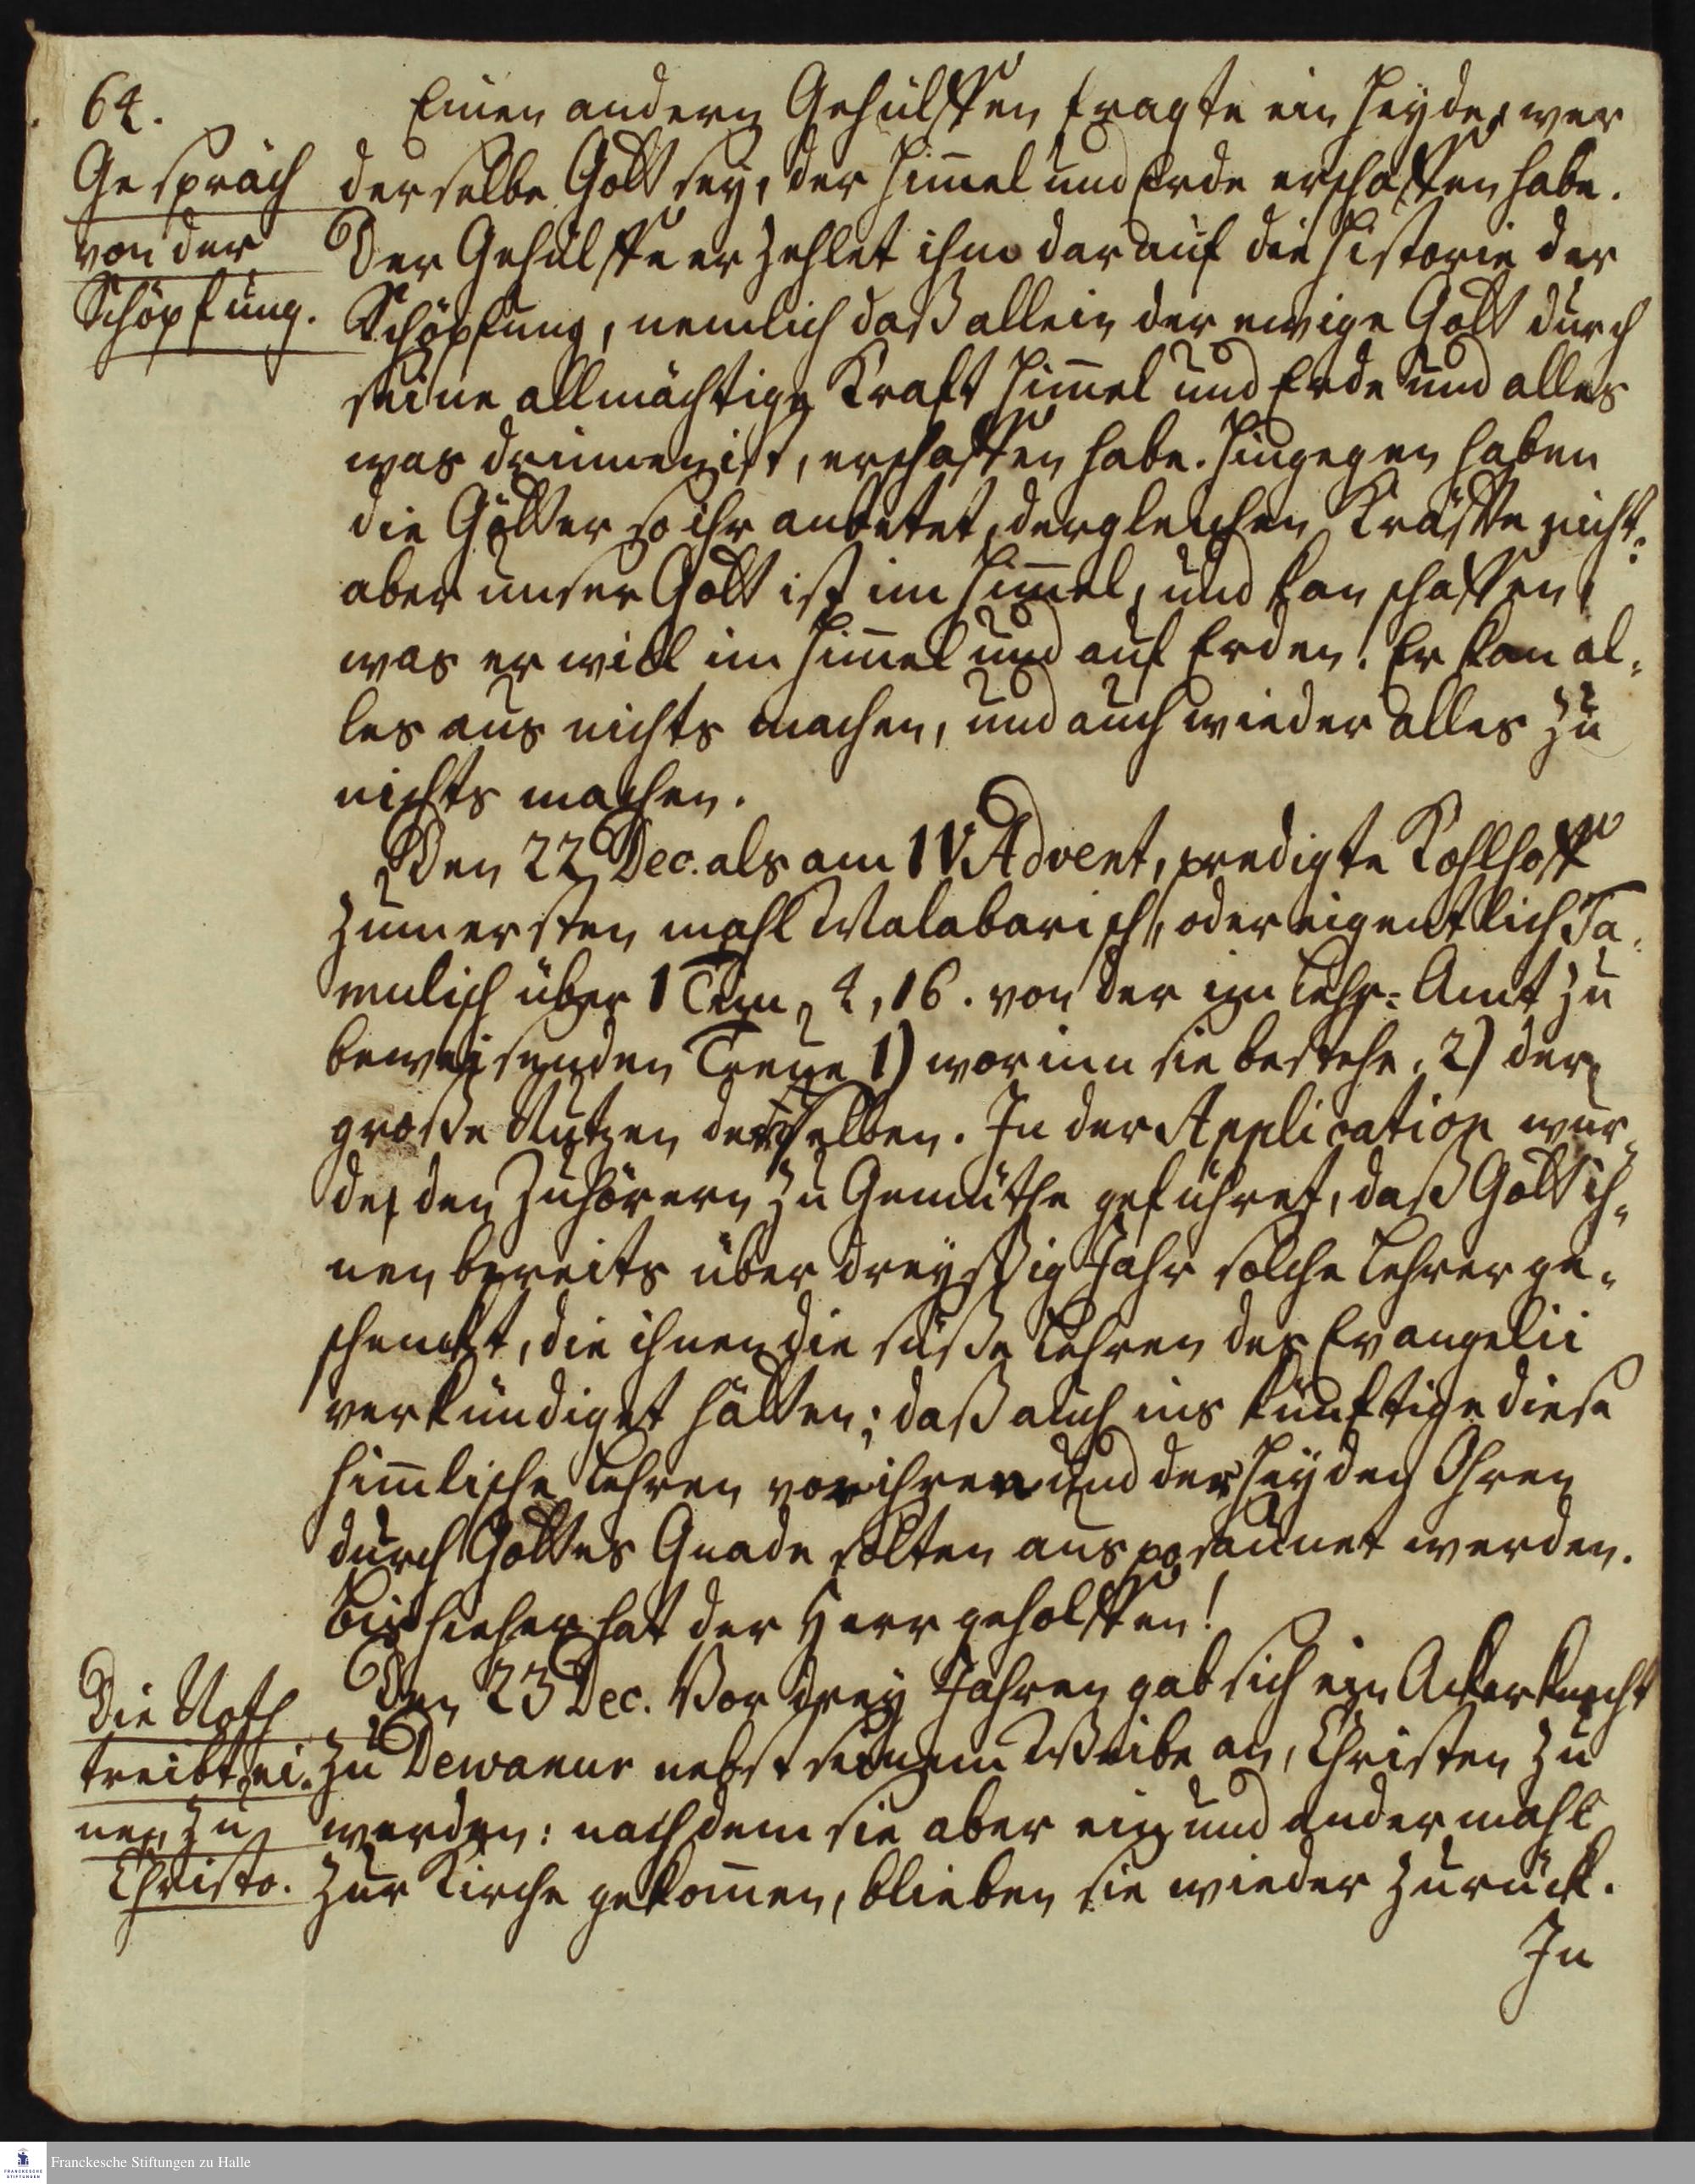 64.
Gespräch
von der
Schöpfung.
Einen andern Gehülffen fragte ein Heyde, wer
derselbe Gott sey, der Him̄el und Erde erschaffen habe.
Der Gehülffe erzehlet ihm darauf die Historie der
Schöpfung, nemlich daß allein der ewige Gott durch
seine allmächtige Kraft Him̄el und Erde und alles
was drinnen ist, erschaffen habe. Hingegen haben
die Götter so ihr anbetet, dergleichen Kräffte nicht:
aber unser Gott ist im Him̄el, und kan schaffen,
was er will im Him̄el und auf Erden. Er kan al-
les aus nichts machen, und auch wieder alles zu
nichts machen.
Den 22 Dec. als am IV Advent, predigte Kohlhoff
zum ersten mahl Malabarisch, oder eigentlich Ta-
mulisch über 1 Tim 4, 16. von der im Lehr-Amt zu
beweisenden Treue 1) worinn sie bestehe, 2) der
große Nutzen derselben. In der Application wur-
de den Zuhörern zu Gemüthe geführet, daß Gott ih-
nen bereits über dreyßig Jahr solche Lehrer ge-
schenckt, die ihnen die süße Lehren des Evangelii
verkündiget hätten; daß auch ins künftige diese
him̄lische Lehren vor ihren und der Heyden Ohren
durch Gottes Gnade solten ausposaunet werden.
Bis hieher hat der Herr geholffen!
Die Noth
treibt ei-
nen zu
Christo.
Den 23 Dec. Vor drey Jahren gab sich ein Ackerknecht
zu Dewanur nebst seinem Weibe an, Christen zu
werden: nachdem sie aber ein und ander mahl
zur Kirche gekom̄en, blieben sie wieder zurück.
In
Franckesche Stiftungen zu Halle
FRANCKESCHE
STIFTUNGEN